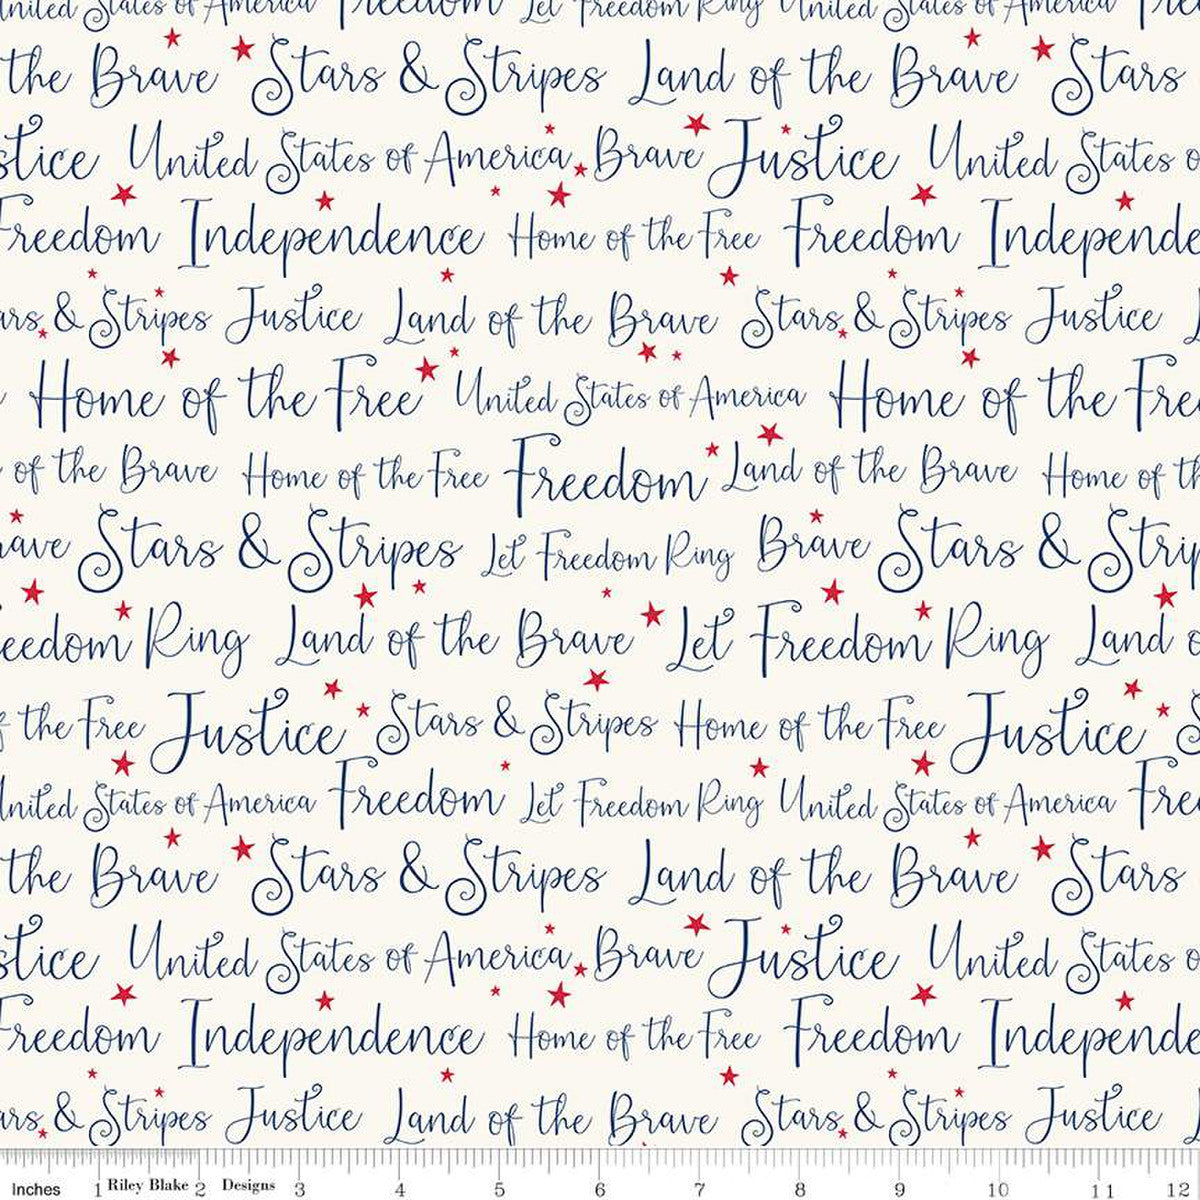 United States of America Freedom Let Freedom Ring United States of America Free
the Brave Stars & Stripes Land of the Brave Stars
stice United States of America Brave Justice United States o
Freedom Independence Home of the Free Freedom Independe
ars & Stripes Justice Land of the Brave Stars & Stripes Justice L
Home of the Free United States of America Home of the Free
of the Brave Home of the Free Freedom Land of the Brave Home of th
rave Stars & Stripes Let Freedom Ring Brave Stars & Strip
eedom Ring Land of the Brave Let Freedom Ring Land o
f the Free Justice Stars & Stripes Home of the Free Justice S
United States of America Freedom Let Freedom Ring United States of America Free
the Brave Stars & Stripes Land of the Brave Stars
stice United States of America Brave Justice United States o
Freedom Independence Home of the Free Freedom Independe
ars & Stripes Justice Land of the Brave Stars & Stripes Justice L
Inches 1 Riley Blake 2 Designs 3 4 5 6 7 8 9 10 11 12